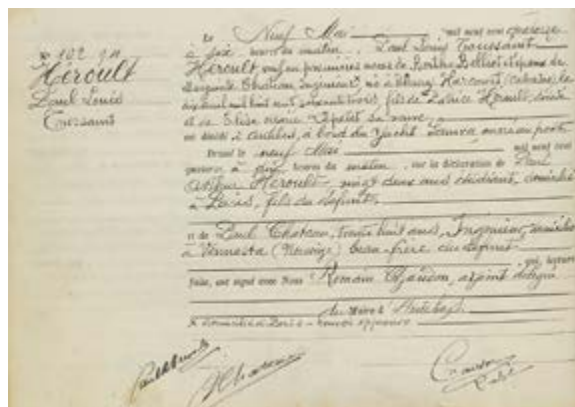 Nº 102
Héroult
Paul Louis
Toussaint
Le Neuf Mai mil neuf cent quatorze
à six heures du matin, Paul Louis Toussaint
Héroult veuf en premières noces de Berthe Belliot et époux de
Marguerite Chateau, Ingénieur, né à Thury Harcourt (Calvados) le
dix avril mil huit cent soixante trois, fils de Patrice Héroult, décédé
et de Elisa sa veuve,
est décédé à Antibes, à bord du Yacht ancré au port
Dressé le neuf Mai mil neuf cent
quatorze, à dix heures du matin, sur la déclaration de Paul
Arthur Héroult, vingt deux ans étudiant, domicilié
à Paris, fils du défunt,
et de Paul Chateau, trente huit ans, Ingénieur, domicilié
à (Norvège) beau-frère du défunt
qui, lecture
faite, ont signé avec Nous Romain adjoint délégué
du Maire d'Antibes
domicilié à Paris approuvé